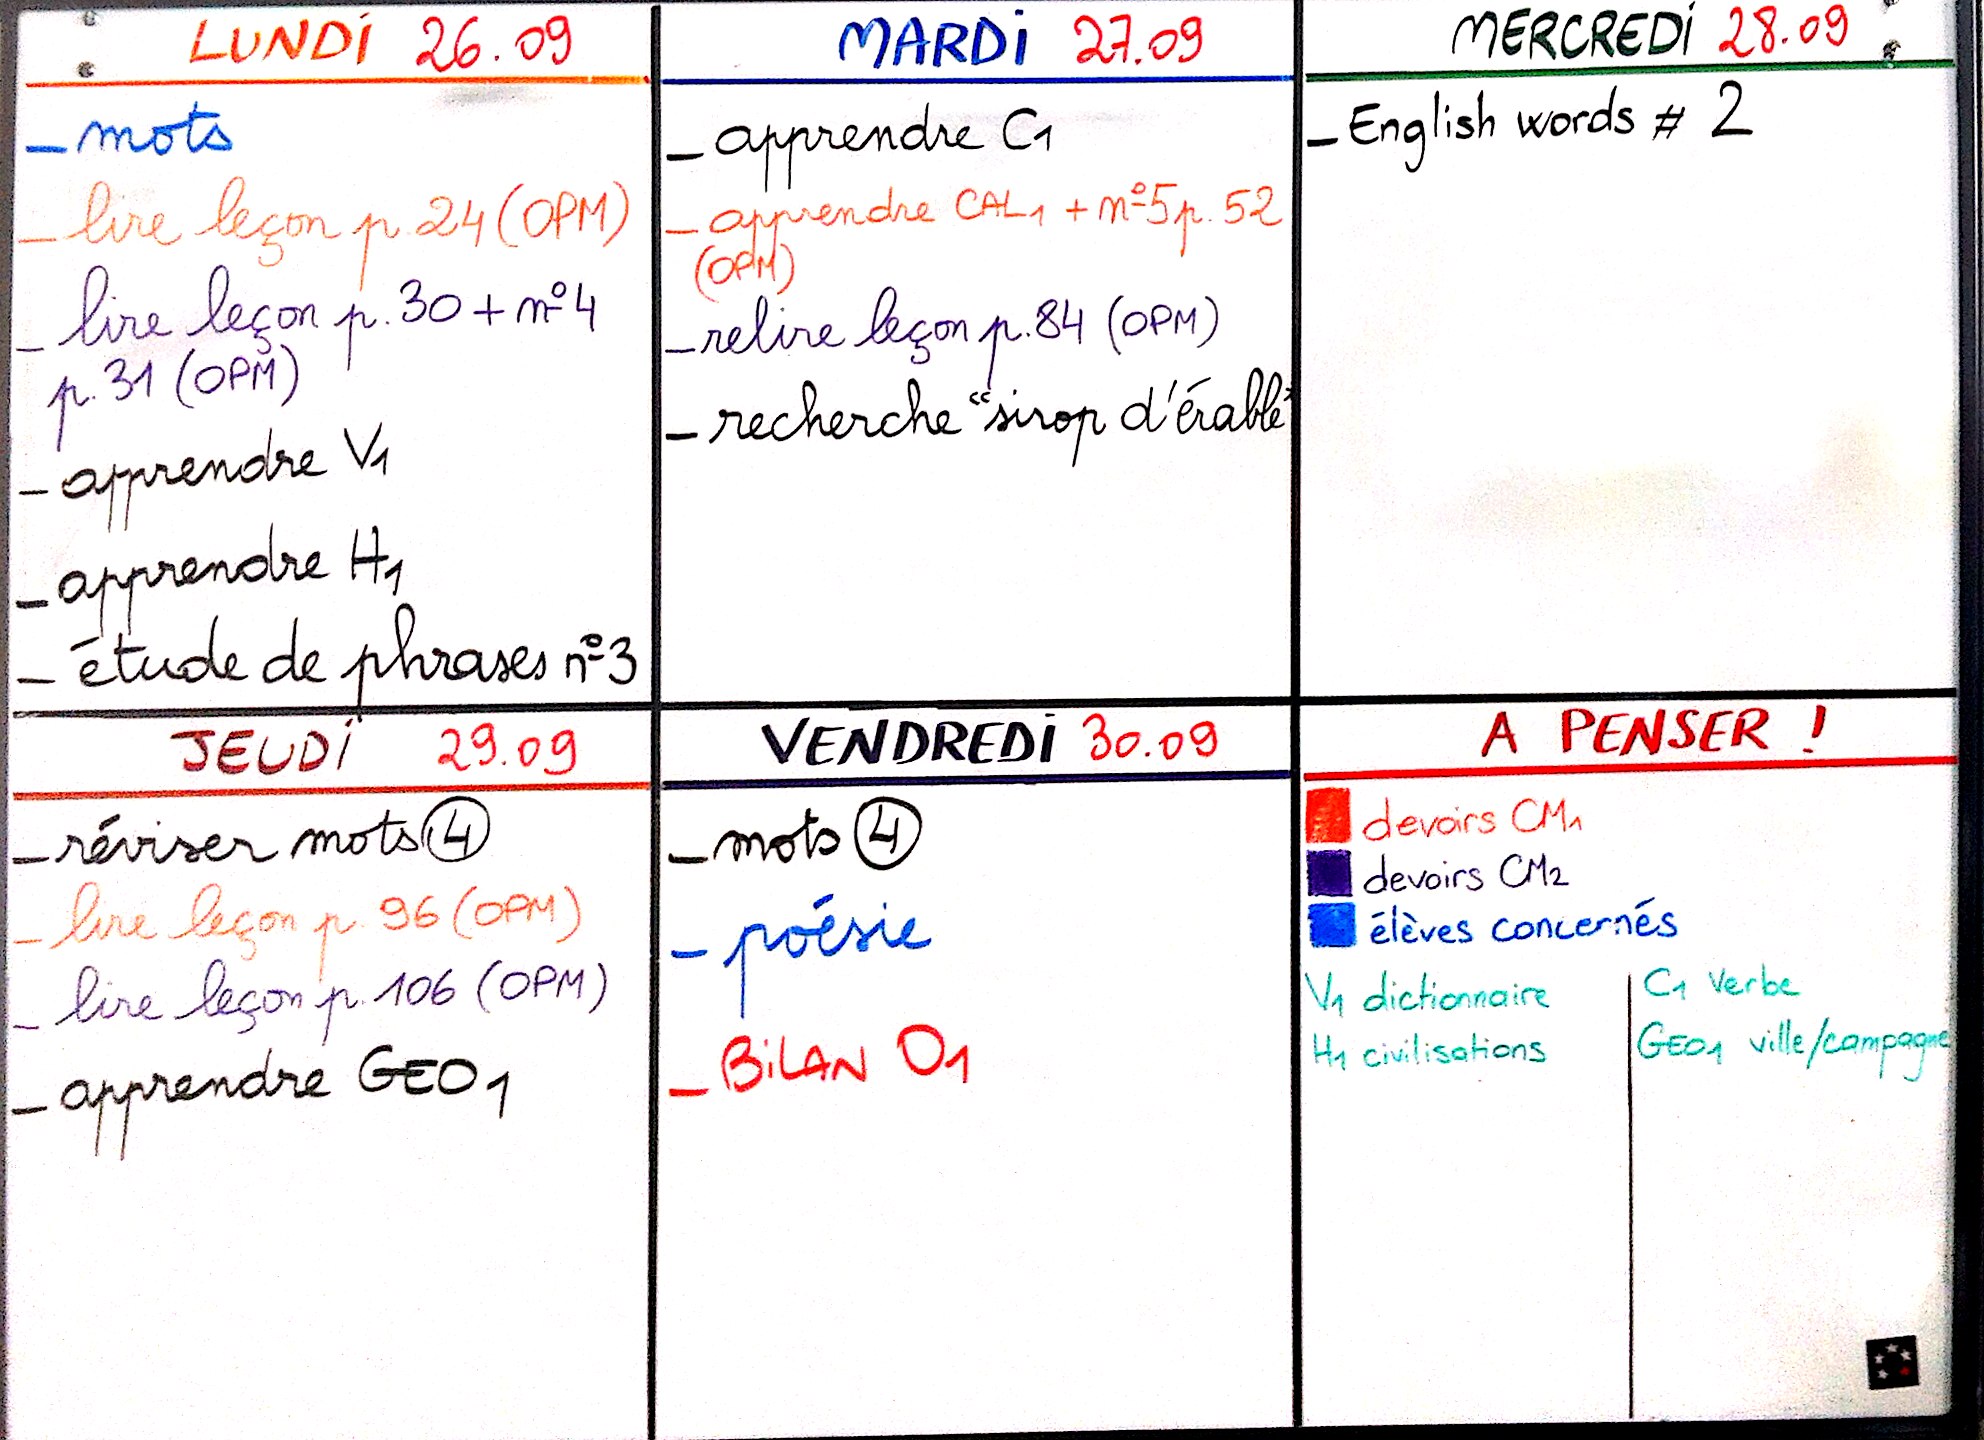 LUNDI 26.09
_ mots
_ lire leçon p.24 (OPM)
_ lire leçon p.30 + n°4
p.31 (OPM)
_ apprendre V1
_ apprendre H1
_ étude de phrases n°3
MARDI 27.09
_ apprendre C1
_ apprendre CAL1 + n°5 p.52
(OPM)
_ relire leçon p.84 (OPM)
_ recherche "sirop d'érable"
MERCREDI 28.09
_ English words # 2
JEUDI 29.09
_ réviser mots 4
_ lire leçon p.96 (OPM)
_ lire leçon p.106 (OPM)
_ apprendre GEO1
VENDREDI 30.09
_ mots 4
_ poésie
_ BILAN O1
A PENSER !
devoirs CM1
devoirs CM2
élèves concernés
V1 dictionnaire
H1 civilisations
C1 Verbe
GEO1 ville/campagne